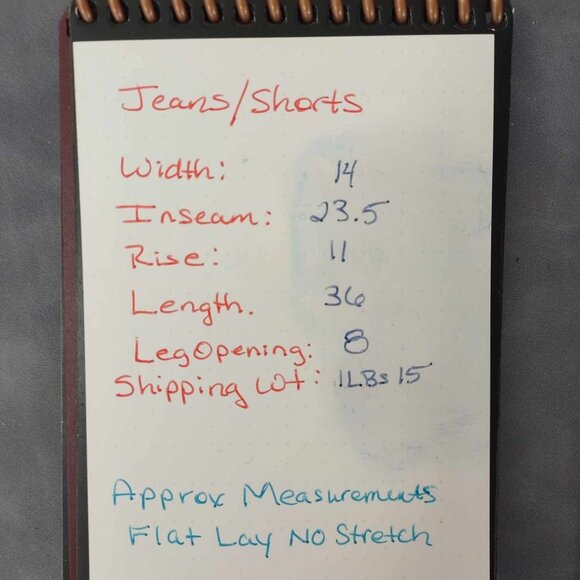 Jeans/Shorts
Width: 14
Inseam: 23.5
Rise: 11
Length. 36
Leg Opening: 8
Shipping Wt: 1LBs 15
Approx Measurements
Flat Lay No Stretch